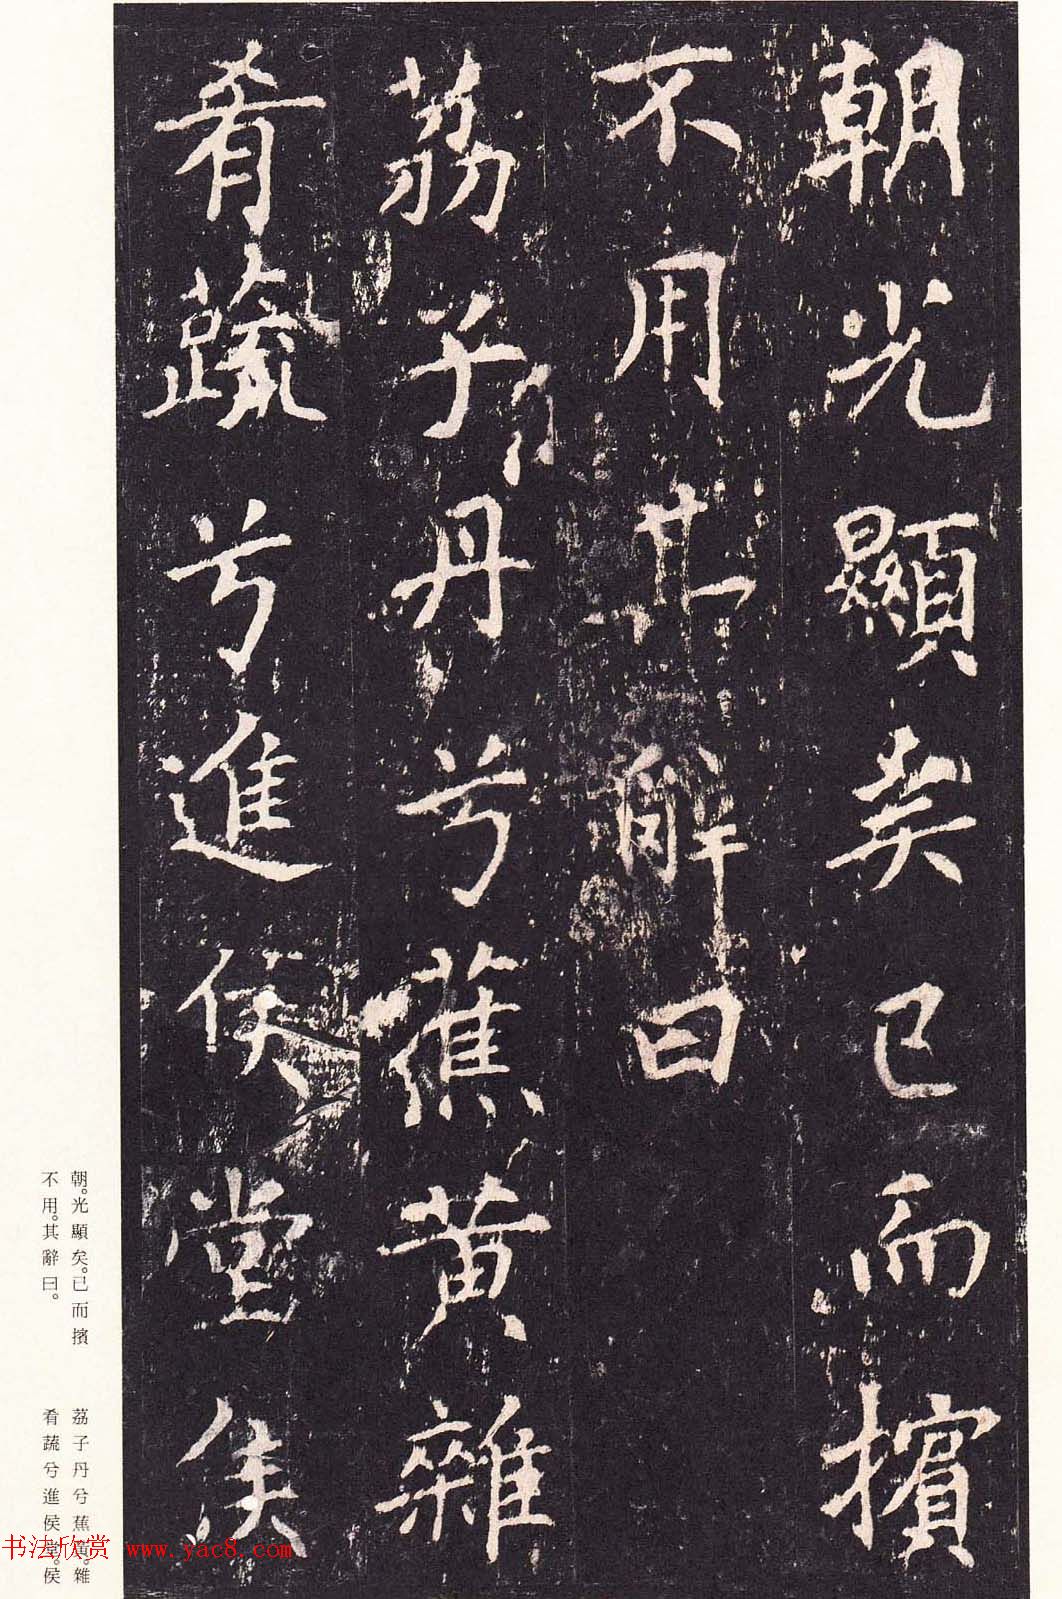 朝光顯矣已而擯
不用其辭曰
荔子丹兮蕉黃雜
肴蔬兮進侯堂侯
朝。光顯矣。已而擯
不用。其辭曰。
荔子丹兮蕉黃。雜
肴蔬兮進侯堂。侯
书法欣赏 www.yac8.com